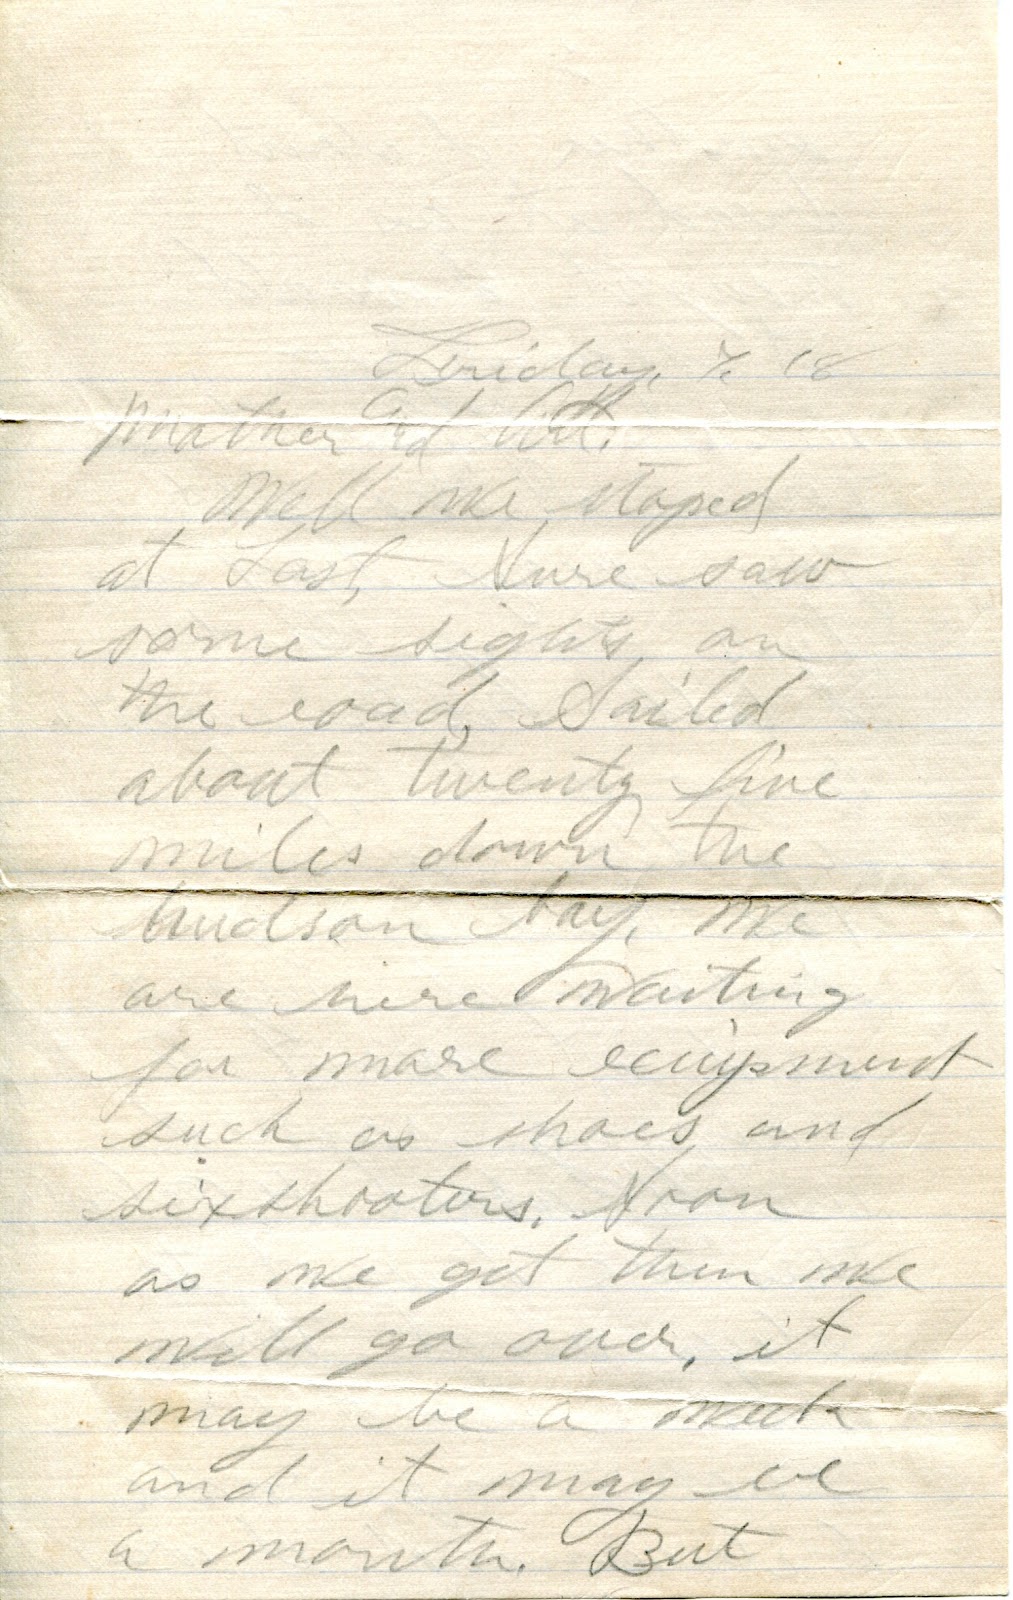 Friday, 7/ 18
Mother and All.
Well we stoped
at Last, Sure saw
some sights on
the road, Sailed
about twenty five
miles down the
hudson bay. we
are here waiting
for more
such as shoes and
sixshooters. Soon
as we get them we
will go over, it
may be a week
and it may be
a month. But